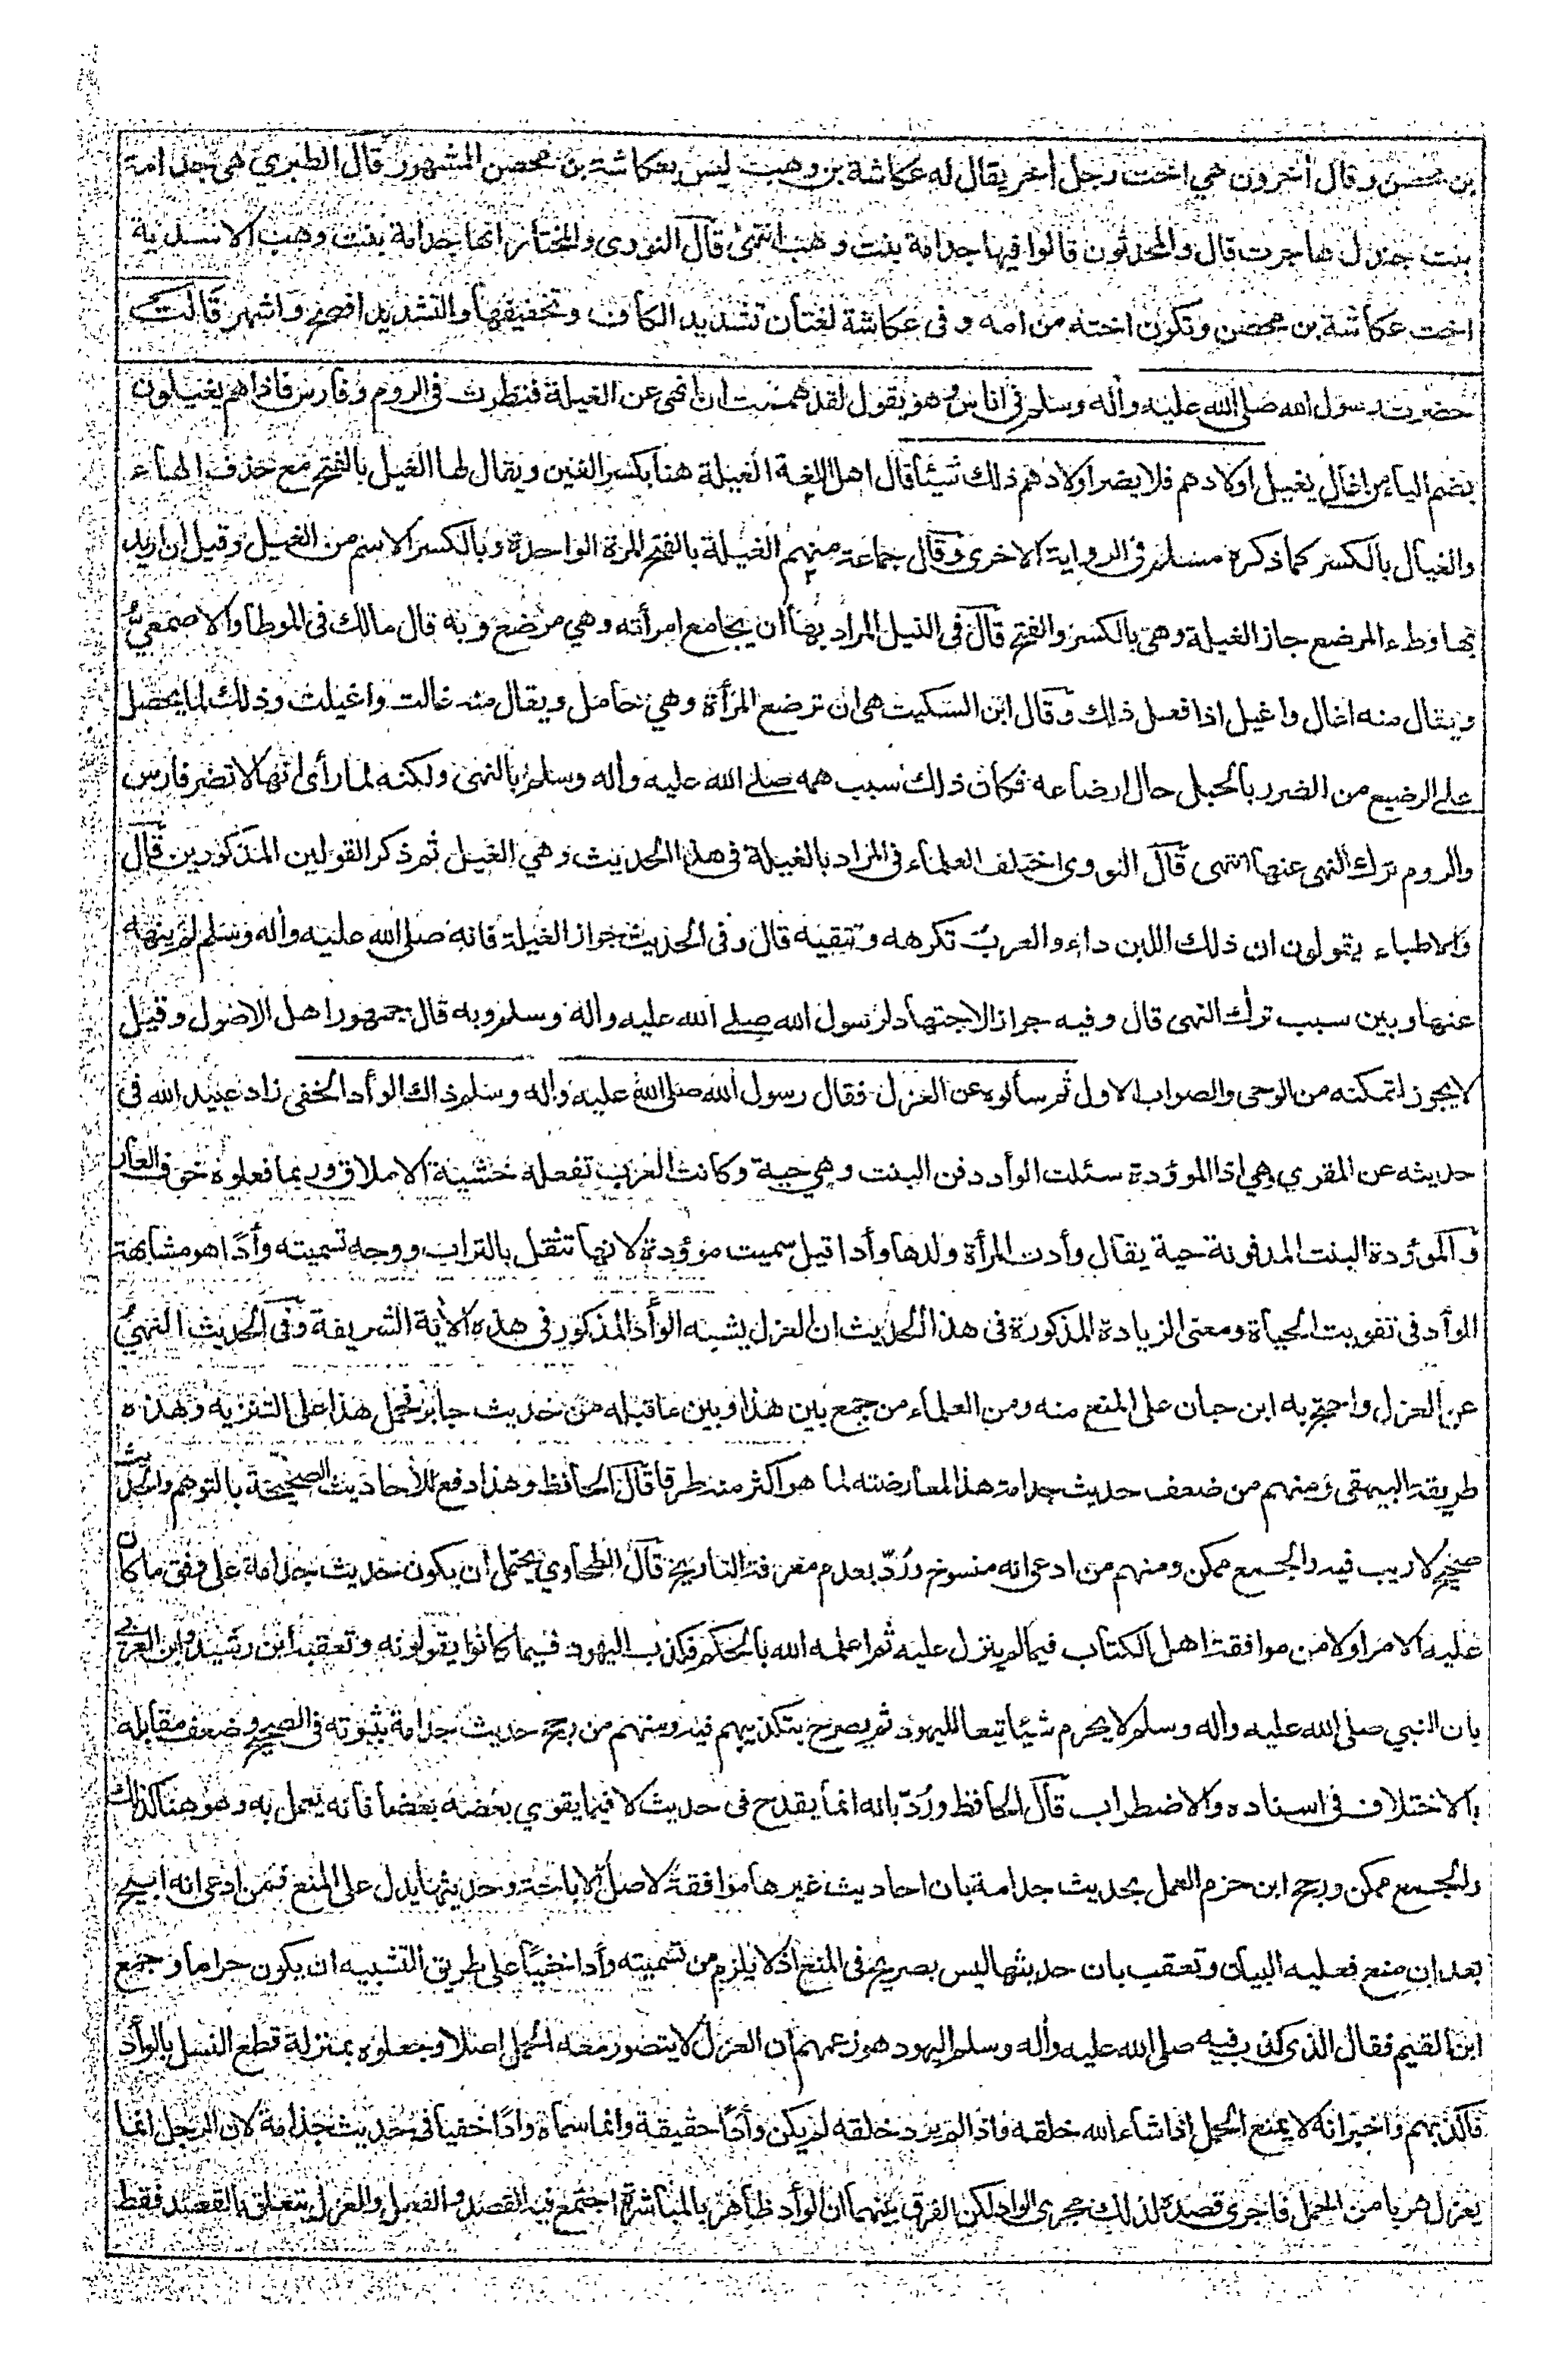 بن محصن وقال أخرون هي اخت رجل أخر يقال له عكاشة بن وهب ليس بعكاشة بن محصن المشهور قال الطبري هي جدامة
بنت جندل هاجرت قال والمحدثون قالوا فيها جدامة بنت وهب انتهى قال النووى والمختار انها جدامة بنت وهب الاسدية
اخت عكاشة بن محصن وتكون اخته من امه وفى عكاشة لغتان تشديد الكاف وتخفيفها والتشديد افصح واشهر قالت
حضرت رسول الله صلى الله عليه وأله وسلم فى اناس وهو يقول لقد هممت ان انهى عن الغيلة فنظرت فى الروم وفارس فاذا هم يغيلون
بضم الياء من اغال يغيل اولادهم فلا يضر اولادهم ذلك شيئا قال اهل اللغة الغيلة هنا بكسر الغين ويقال لها الغيل بالفتح مع حذف الهاء
والغيال بالكسر كما ذكره مسلم فى الرواية الاخرى وقال جماعة منهم الغيلة بالفتح المرة الواحدة وبالكسر الاسم من الغيل وقيل ان اريد
بها وطء المرضع جاز الغيلة وهى بالكسر والفتح قال فى النيل المراد بها أن يجامع امرأته وهي مرضع وبه قال مالك فى الموطا والاصمعيُّ
ويقال منه اغال واغيل اذا فعل ذلك وقال ابن السكيت هى ان ترضع المرأة وهي حامل ويقال منه غالت واغيلت وذلك لما يحصل
على الرضيع من الضرر بالحبل حال ارضاعه فكان ذلك سبب همه صلى الله عليه وأله وسلم بالنهى ولكنه لما رأى انها لا تضر فارس
والروم ترك النهى عنها انتهى قال النووى اختلف العلماء فى المراد بالغيلة فى هذا الحديث وهي الغيل ثم ذكر القولين المذكورين قال
والاطباء يقولون ان ذلك اللبن داء والعرب تكرهه وتتقيه قال وفى الحديث جواز الغيلة فانه صلى الله عليه وأله وسلم لم ينهه
عنها وبين سبب ترك النهى قال وفيه جواز الاجتهاد لرسول الله صلى الله عليه واله وسلم وبه قال جمهور اهل الاصول وقيل
لا يجوز لتمكنه من الوحى والصواب الاول ثم سألوه عن العزل فقال رسول الله صلى الله عليه وأله وسلم ذاك الوأد الخفى زاد عبيد الله فى
حديثه عن المقري هي اذا الموؤدة سئلت الوأد دفن البنت وهي حية وكانت العرب تفعله خشية الاملاق وربما فعلوه خوف العار
والموؤدة البنت المدفونة حية يقال وأدت المرأة ولدها وأدا قيل سميت موؤدة لانها تثقل بالتراب ووجه تسميته وأدًا هو مشابهة
الوأد فى تفويت الحياة ومعنى الزيادة المذكورة فى هذا الحديث ان العزل يشبه الوأد المذكور فى هذه الأية الشريفة وفى الحديث النهيُ
عن العزل واحتج به ابن حبان على المنع منه ومن العلماء من جمع بين هذا وبين ما قبله من حديث جابر فحمل هذا على التنزيه وهذه
طريقة البيهقى ومنهم من ضعف حديث جدامة هذا لمعارضته لما هو اكثر منه طرقا قال الحافظ وهذا دفع للأحاديث الصحيحة بالتوهم والحديث
صحيح لا ريب فيه والجمع ممكن ومنهم من ادعى انه منسوخ ورُدّ بعدم معرفة التاريخ قال الطحاوي يحتمل ان يكون حديث جدامة على وفق ما كان
عليه الامر اولا من موافقة اهل الكتاب فيما لم ينزل عليه ثم اعلمه الله بالحكم فكذب اليهود فيما كانوا يقولونه وتعقبه ابن رشيد وابن العربي
بان النبي صلى الله عليه واله وسلم لا يحرم شيئا تبعا لليهود ثم يصرح بتكذيبهم فيه ومنهم من رجح حديث جدامة بثبوته فى الصحيح وضعف مقابله
بالاختلاف فى اسناده والاضطراب قال الحافظ ورُدّ بانه انما يقدح فى حديث لا فيما يقوي بعضه بعضا فانه يعمل به وهو هنا كذلك
والجمع ممكن ورجح ابن حزم العمل بحديث جدامة بان احاديث غيرها موافقة لاصل الاباحة وحديثها يدل على المنع فمن ادعى انه ابيح
بعد ان منع فعليه البيان وتعقب بان حديثها ليس بصريح فى المنع اذ لا يلزم من تسميته وأدا خفيًا على طريق التشبيه ان يكون حراما وجمع
ابن القيم فقال الذى كذب فيه صلى الله عليه وأله وسلم اليهود هو زعمهم ان العزل لا يتصور معه الحمل اصلا وجعلوه بمنزلة قطع النسل بالوأد
فاكذبهم واخبر انه لا يمنع الحمل اذا شاء الله خلقه واذا لم يرد خلقه لم يكن وأدًا حقيقة وانما سماه وادًا خفيا فى حديث جذامة لان الرجل انما
يعزل هربا من الحمل فاجرى قصده لذلك مجرى الواد لكن الفرق بينهما ان الوأد ظاهر بالمباشرة اجتمع فيه القصد والفعل والعزل يتعلق بالقصد فقط